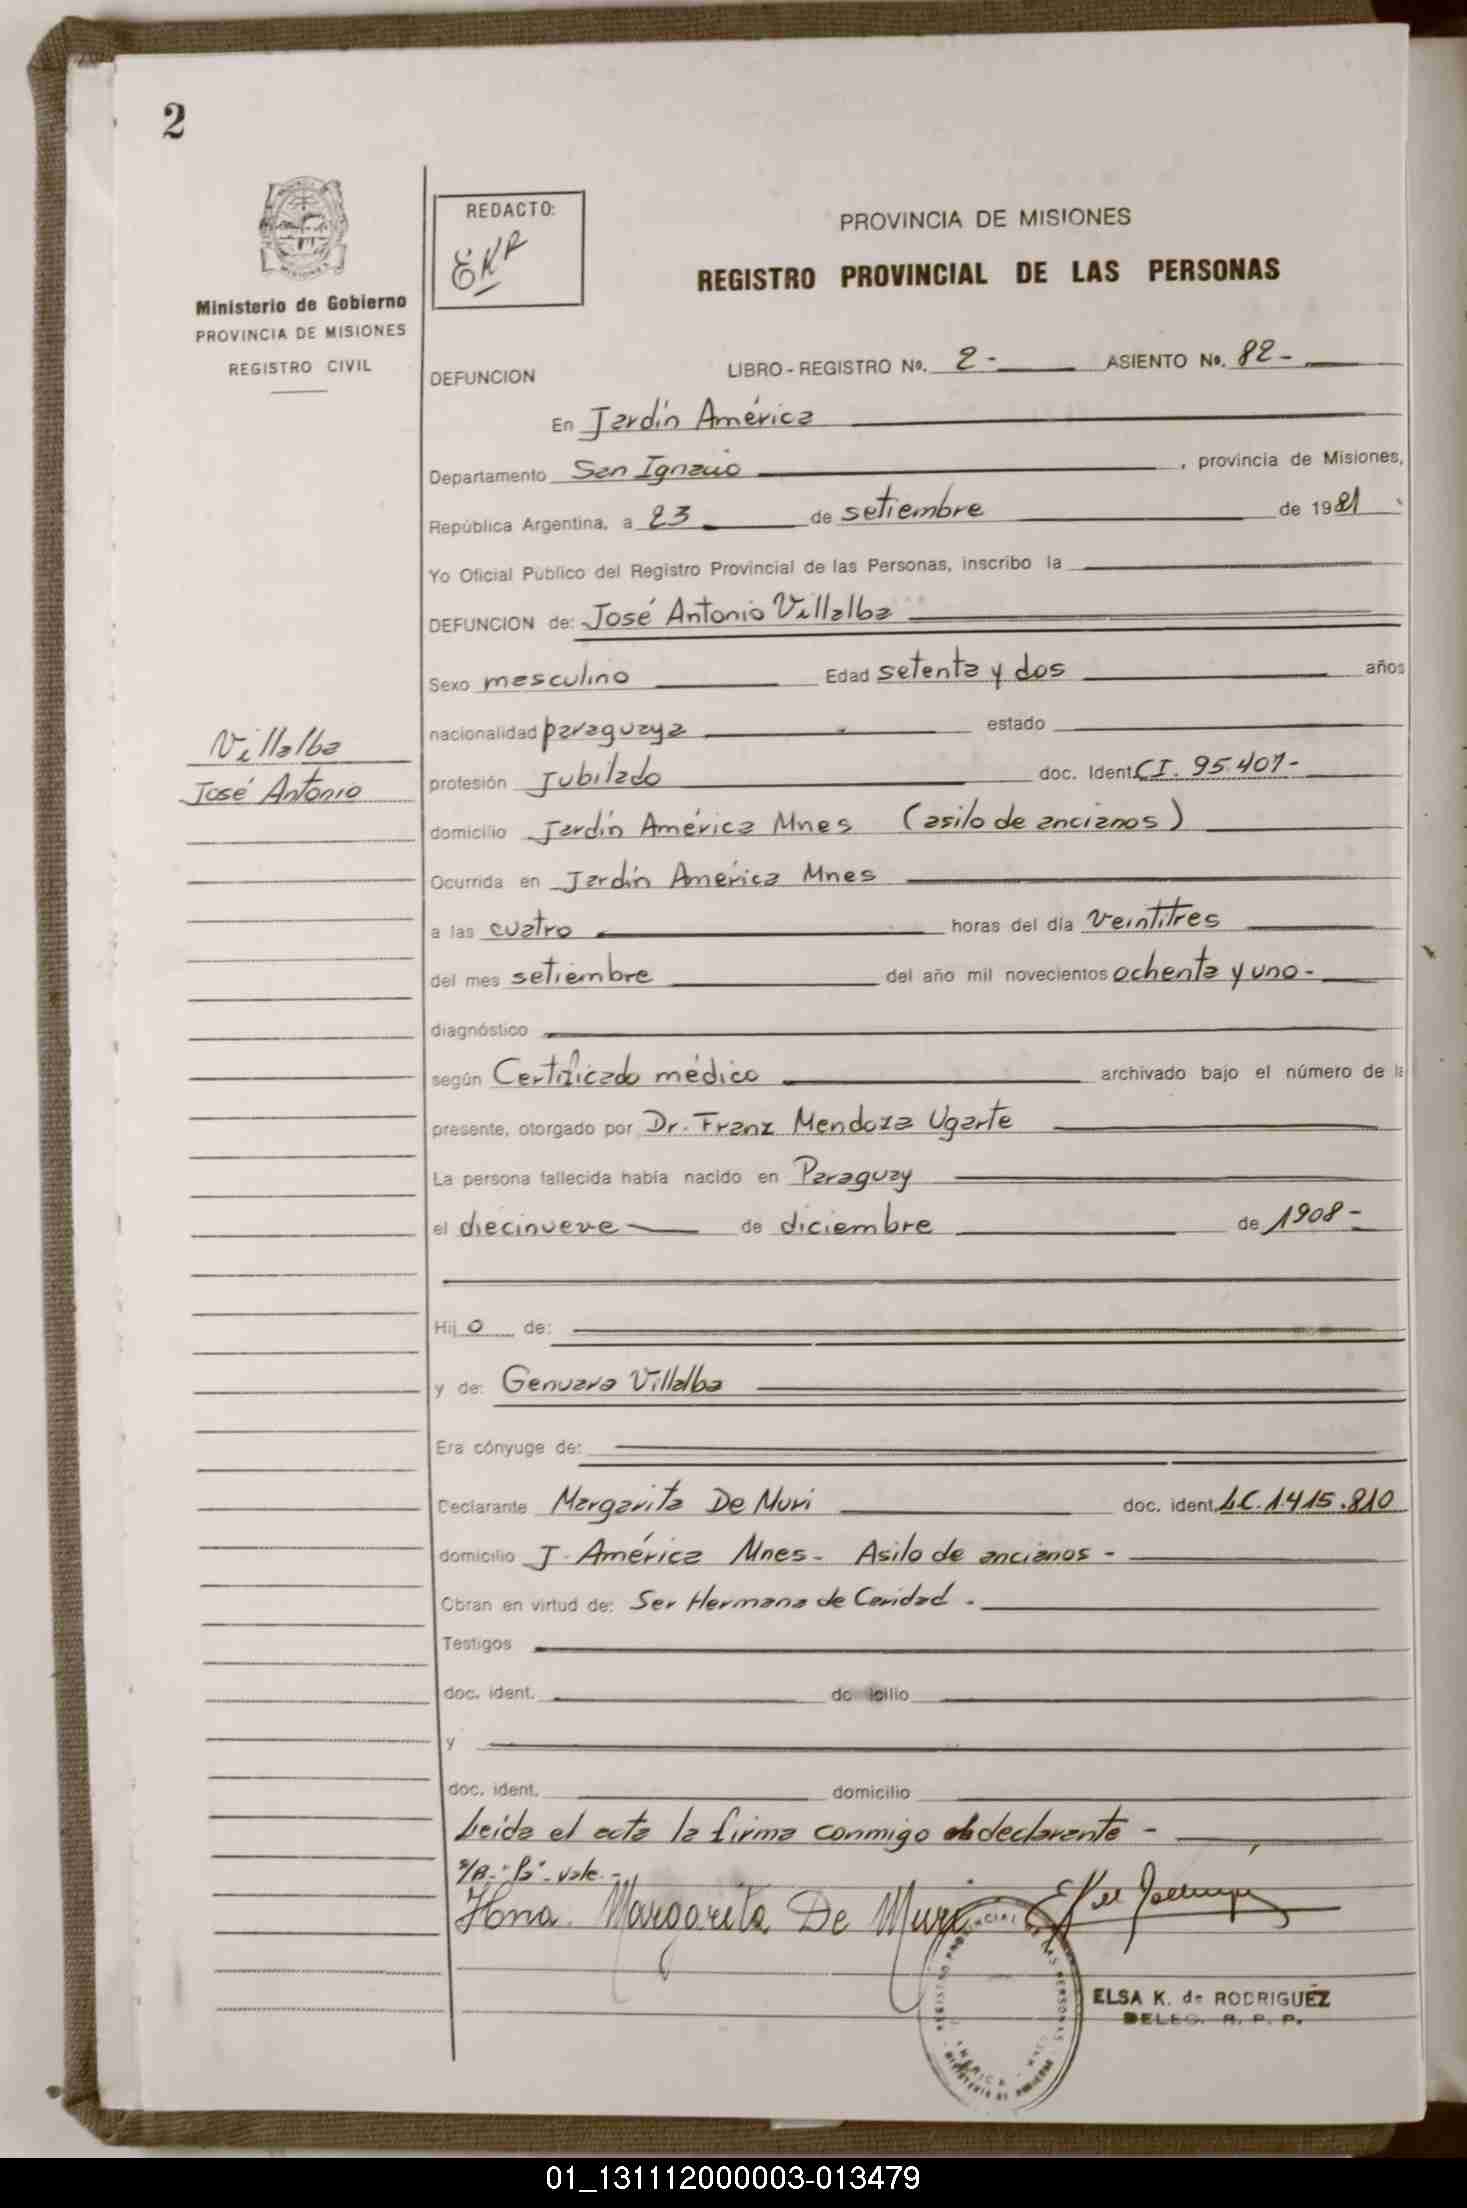 2
Ministerio de Gobierno
PROVINCIA DE MISIONES
REGISTRO CIVIL
REDACTO:
EKR
PROVINCIA DE MISIONES
REGISTRO PROVINCIAL DE LAS PERSONAS
DEFUNCION LIBRO-REGISTRO No. 2- ASIENTO No. 82-
En Jardín América
Departamento San Ignacio , provincia de Misiones,
República Argentina, a 23 de setiembre de 1981
Yo Oficial Publico del Registro Provincial de las Personas, inscribo la
DEFUNCION de: José Antonio Villalba
Sexo masculino Edad setenta y dos años
nacionalidad paraguaya estado
Villalba
José Antonio
profesión Jubilado doc. Ident. CI. 95.407-
domicilio Jardín América Mnes (asilo de ancianos)
Ocurrida en Jardín América Mnes
a las cuatro horas del día veintitres
del mes setiembre del año mil novecientos ochenta y uno-
diagnóstico
según Certificado médico archivado bajo el número de la
presente, otorgado por Dr. Franz Mendoza Ugarte
La persona fallecida había nacido en Paraguay
el diecinueve de diciembre de 1908-
Hij o de:
y de: Genuara Villalba
Era cónyuge de:
Declarante Margarita De Muri doc. ident. L.C. 1.415.810
domicilio J. América Mnes- Asilo de ancianos-
Obran en virtud de: Ser Hermana de Caridad.
Testigos
doc. ident. domicilio
y
doc. ident. domicilio
Leida el acta la firma conmigo declarante-
s/R-"B"-vale.-
Hna. Margarita De Muri
REGISTRO PROVINCIAL DE LAS PERSONAS
AMERICA
MINISTERIO DE GOBIERNO
ELSA K. de RODRIGUEZ
DELEG. R. P. P.
01_131112000003-013479